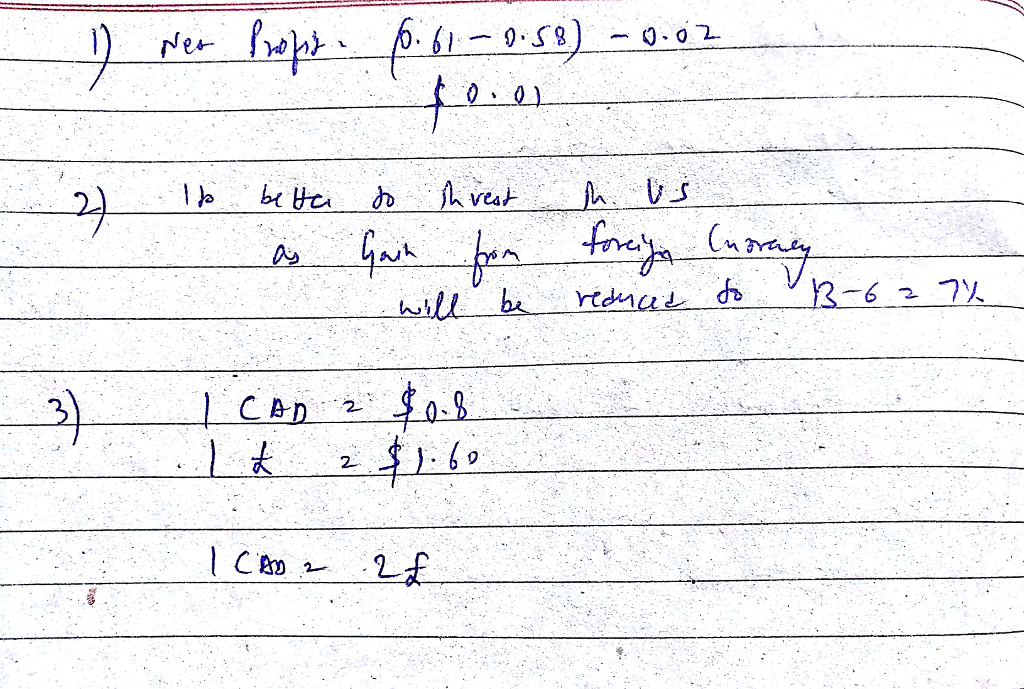 1) Net Profit = (0.61 - 0.58) - 0.02
$ 0.01
2) Its better to Invest in US
as Gain from foreign Currency
will be reduced to 13-6 = 7%
3) 1 CAD = $0.8
1 £ = $1.60
1 CAD = 2£